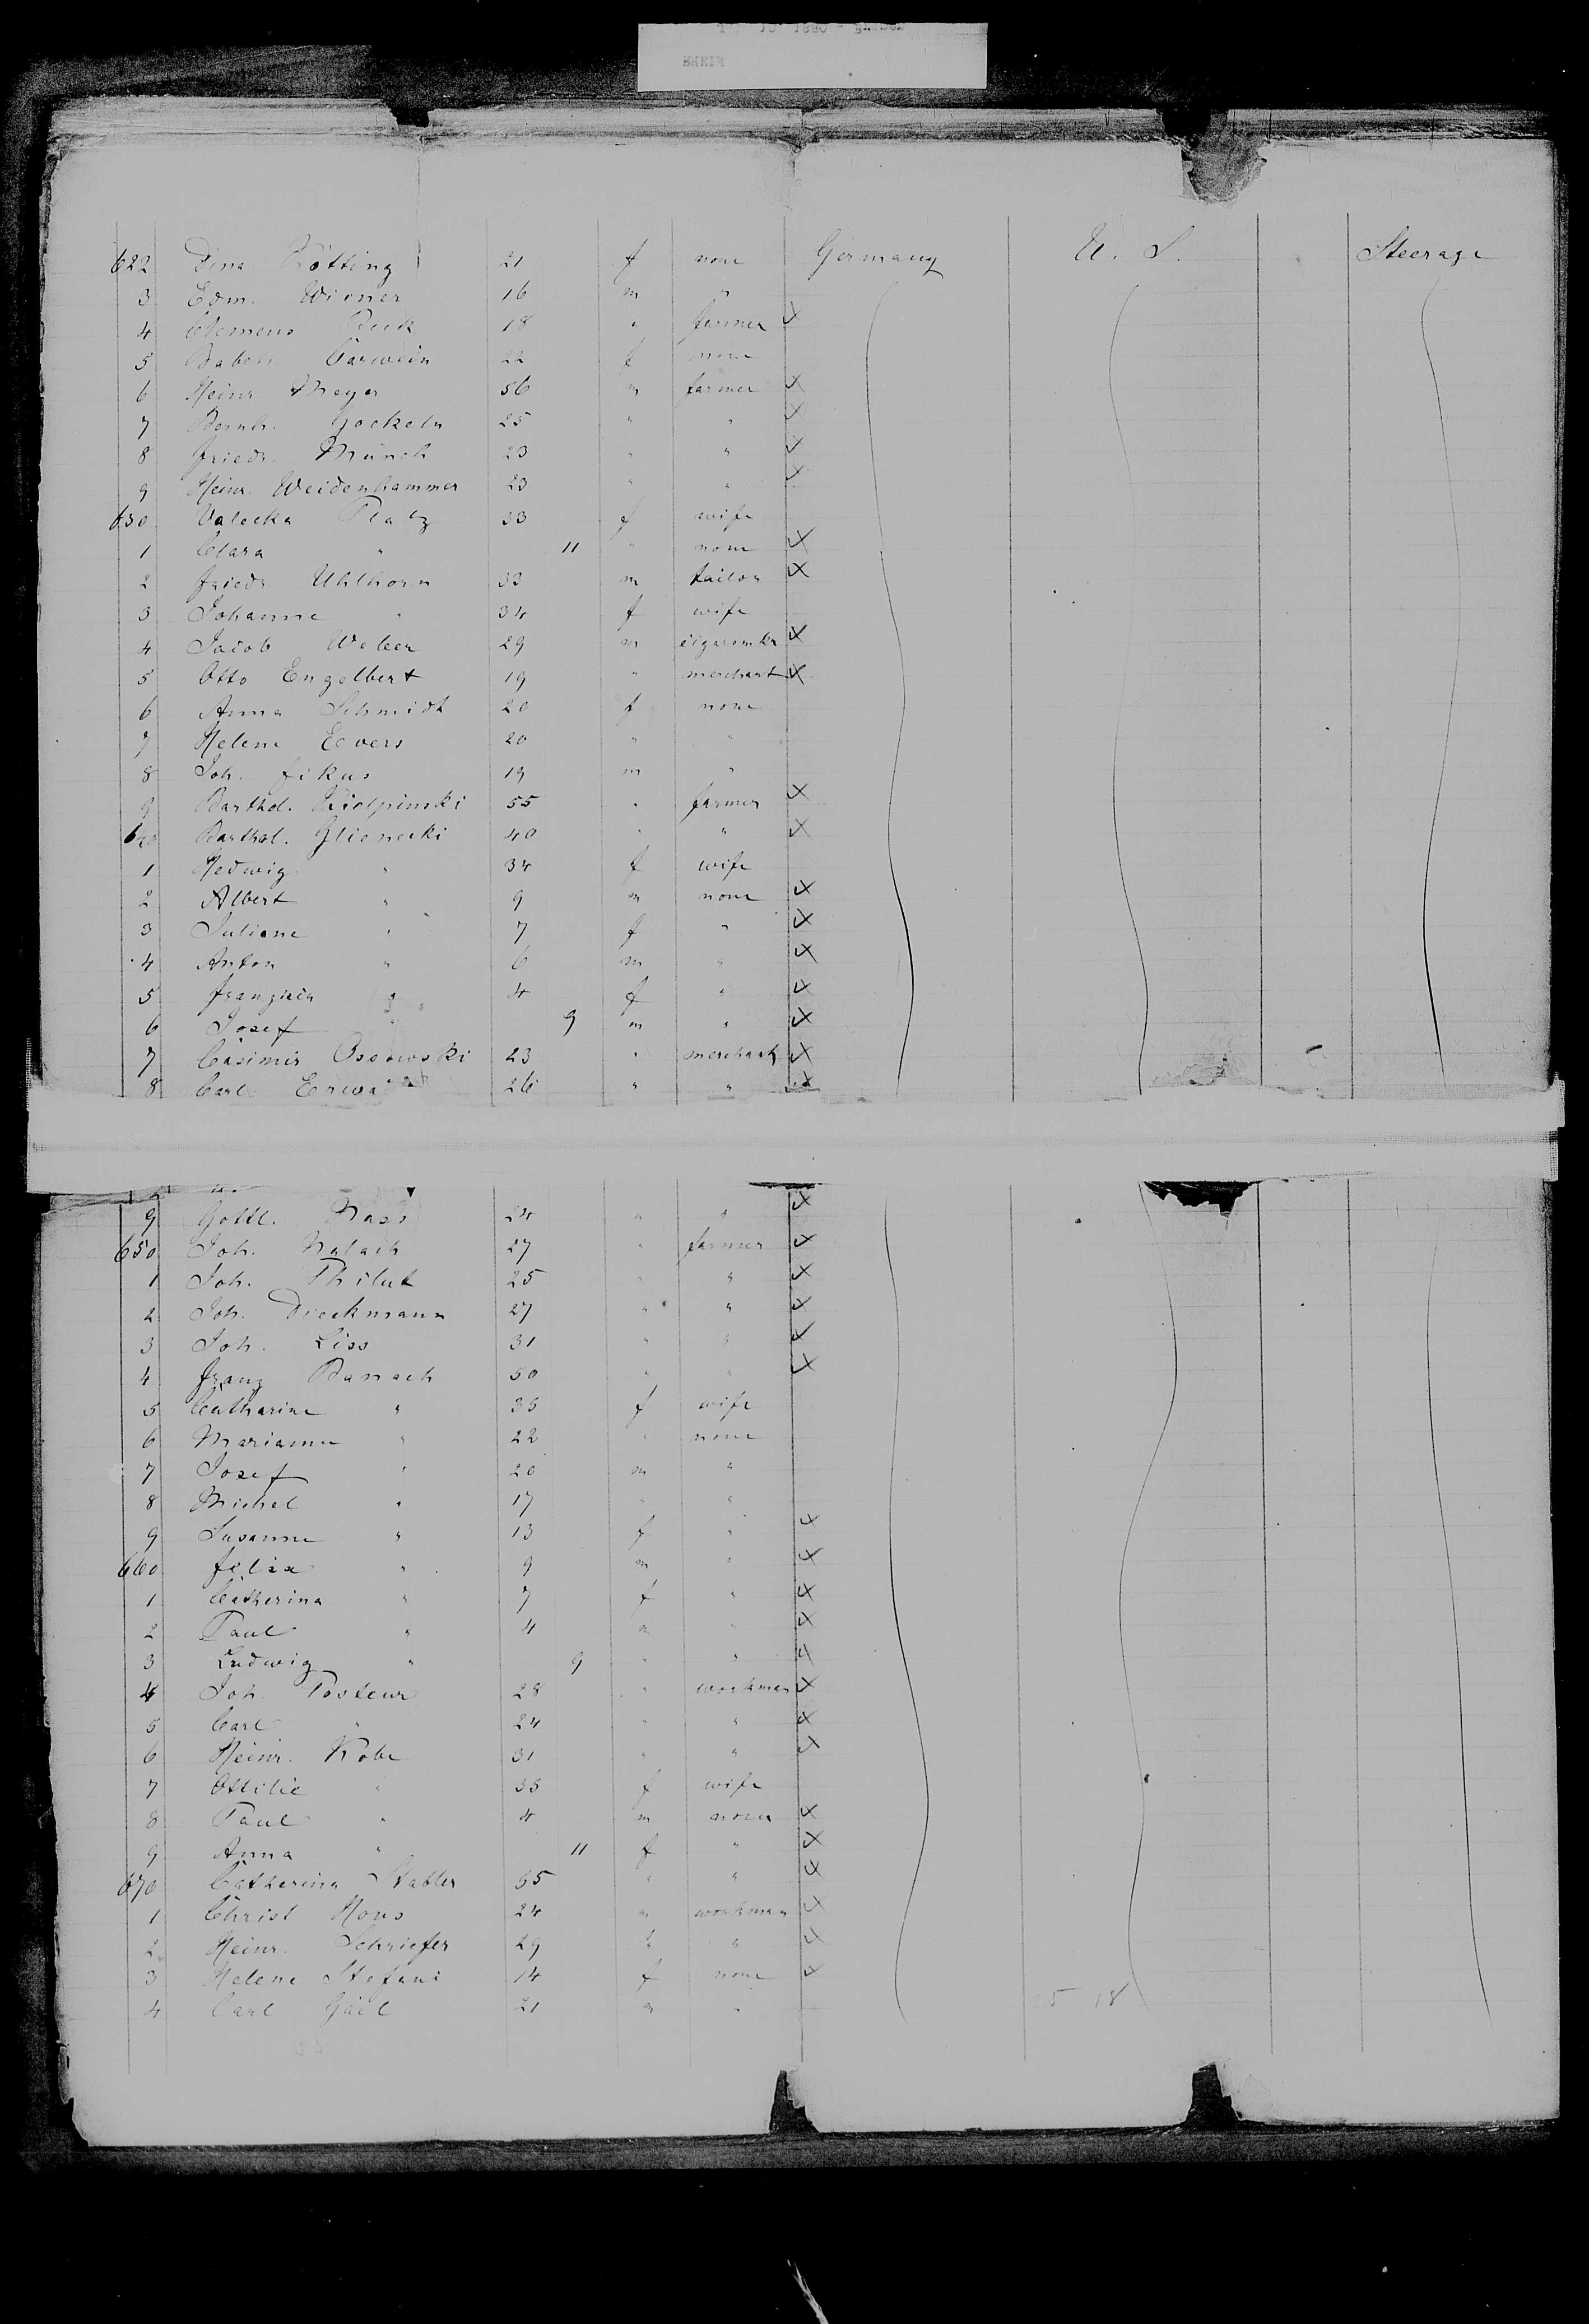 622 Dina Kötting 21 f none Germany U. S. Steerage
3 Edm. Wiener 16 m "
4 Clemens Beck 18 " farmer X
5 Babett Carwein 22 f none
6 Heinr. Meyer 56 m farmer X
7 Bernh. Gockeln 25 " " X
8 Friedr. Münch 23 " " X
9 Heinr. Weidenhammer 23 " " X
630 Valecka Platz 33 f wife
1 Clara " 11 " none X
2 Friedr. Uhlhorn 33 m tailor X
3 Johanne " 34 f wife
4 Jacob Weber 29 m cigarmkr X
5 Otto Engelbert 19 " merchant X
6 Anna Schmidt 20 f none
7 Helene Evers 20 " "
8 Joh. Fikus 19 m "
9 Barthol. Kielpinski 55 " farmer X
640 Barthol. Glienecki 40 " " X
1 Hedwig " 34 f wife
2 Albert " 9 m none X
3 Juliane " 7 f " X
4 Anton " 6 m " X
5 " 4 f " X
6 Josef " 9 m " X
7 Casimir Ossowski 23 " merchant X
8 Carl 26 " " X
9 Gottl. 24 " " X
650 Joh. 27 " farmer X
1 Joh. Thilut 25 " " X
2 Joh. Dieckmann 27 " " X
3 Joh. Liss 31 " " X
4 Franz Banach 50 " " X
5 Catharine " 35 f wife
6 Marianne " 22 " none
7 Josef " 20 m "
8 Michel " 17 " "
9 Susanne " 13 f " X
660 Felix " 9 m " X
1 Catherina " 7 f " X
2 Paul " 4 m " X
3 Ludwig " 9 " " X
4 Joh. Posteur 28 " workman X
5 Carl " 24 " " X
6 Heinr. Kobe 31 " " X
7 Ottilie " 35 f wife
8 Paul " 4 m none X
9 Anna " 11 f " X
670 Catherina Stabler 55 " " X
1 Christ Hons 24 m workman X
2 Heinr. Schriefer 29 " " X
3 Helene Stefani 14 f none X
4 Carl Gäil 21 m "
18